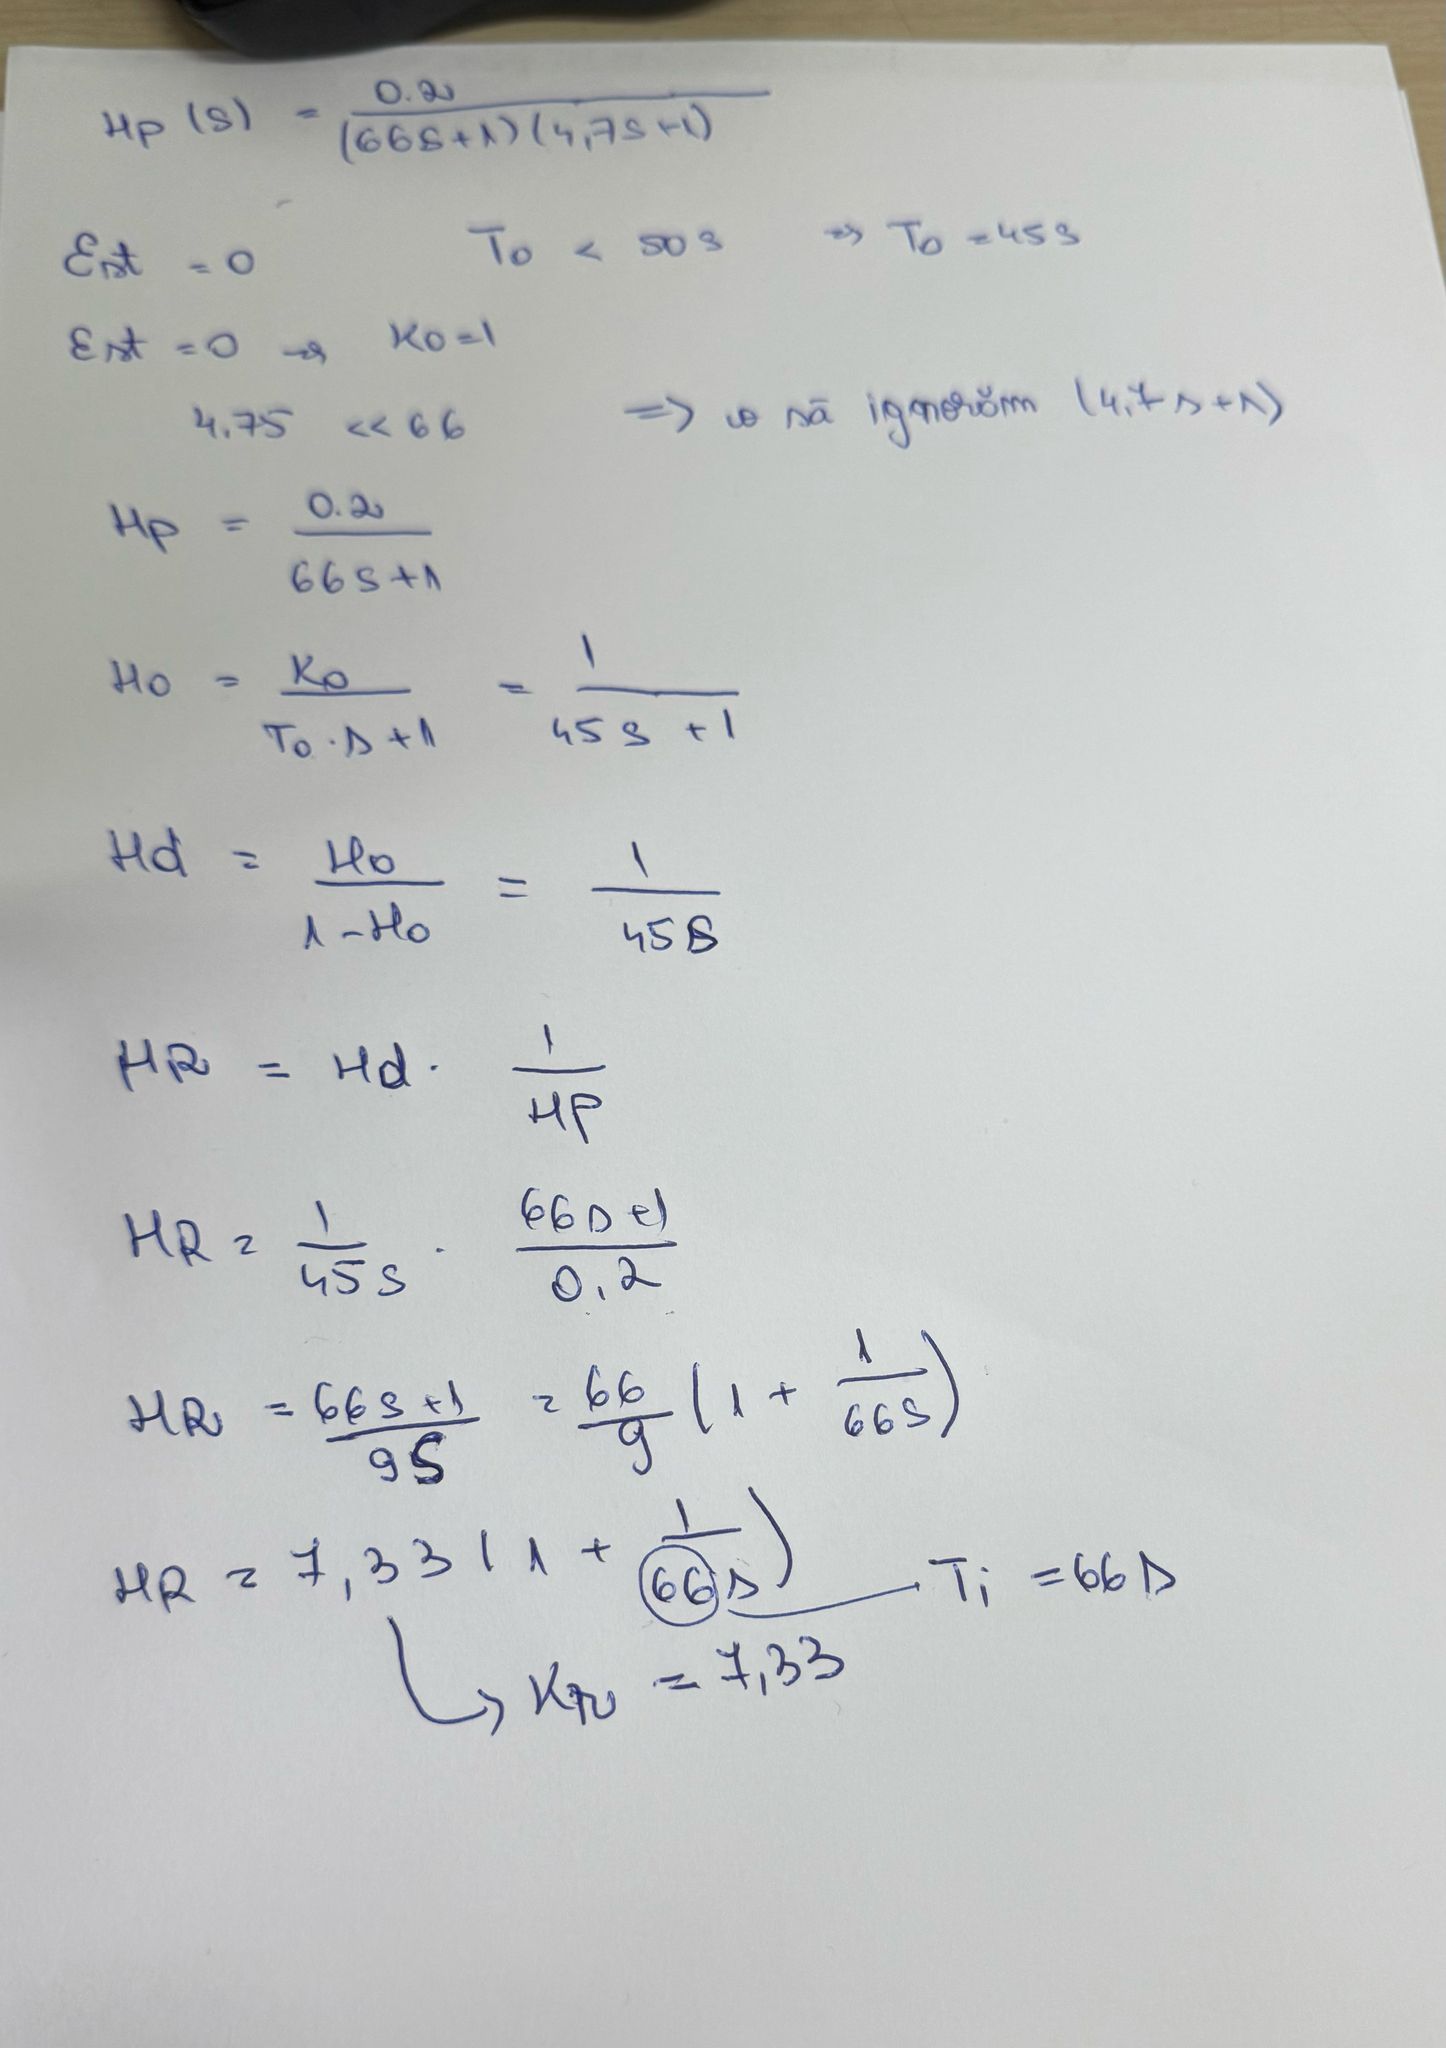 Hp (s) = 0.2 / (66s+1)(4,7s+1)
Est = 0 To < 50s => To = 45s
Est = 0 => Ko=1
4.75 << 66 => o să ignorăm (4,7s+1)
Hp = 0.2 / 66s+1
Ho = Ko / To·s+1 = 1 / 45s+1
Hd = Ho / 1-Ho = 1 / 45s
HR = Hd · 1 / Hp
HR = 1 / 45s · 66s+1 / 0,2
HR = 66s+1 / 9s = 66 / 9 (1 + 1 / 66s)
HR = 7,33 (1 + 1 / 66s) Ti = 66s
KR = 7,33